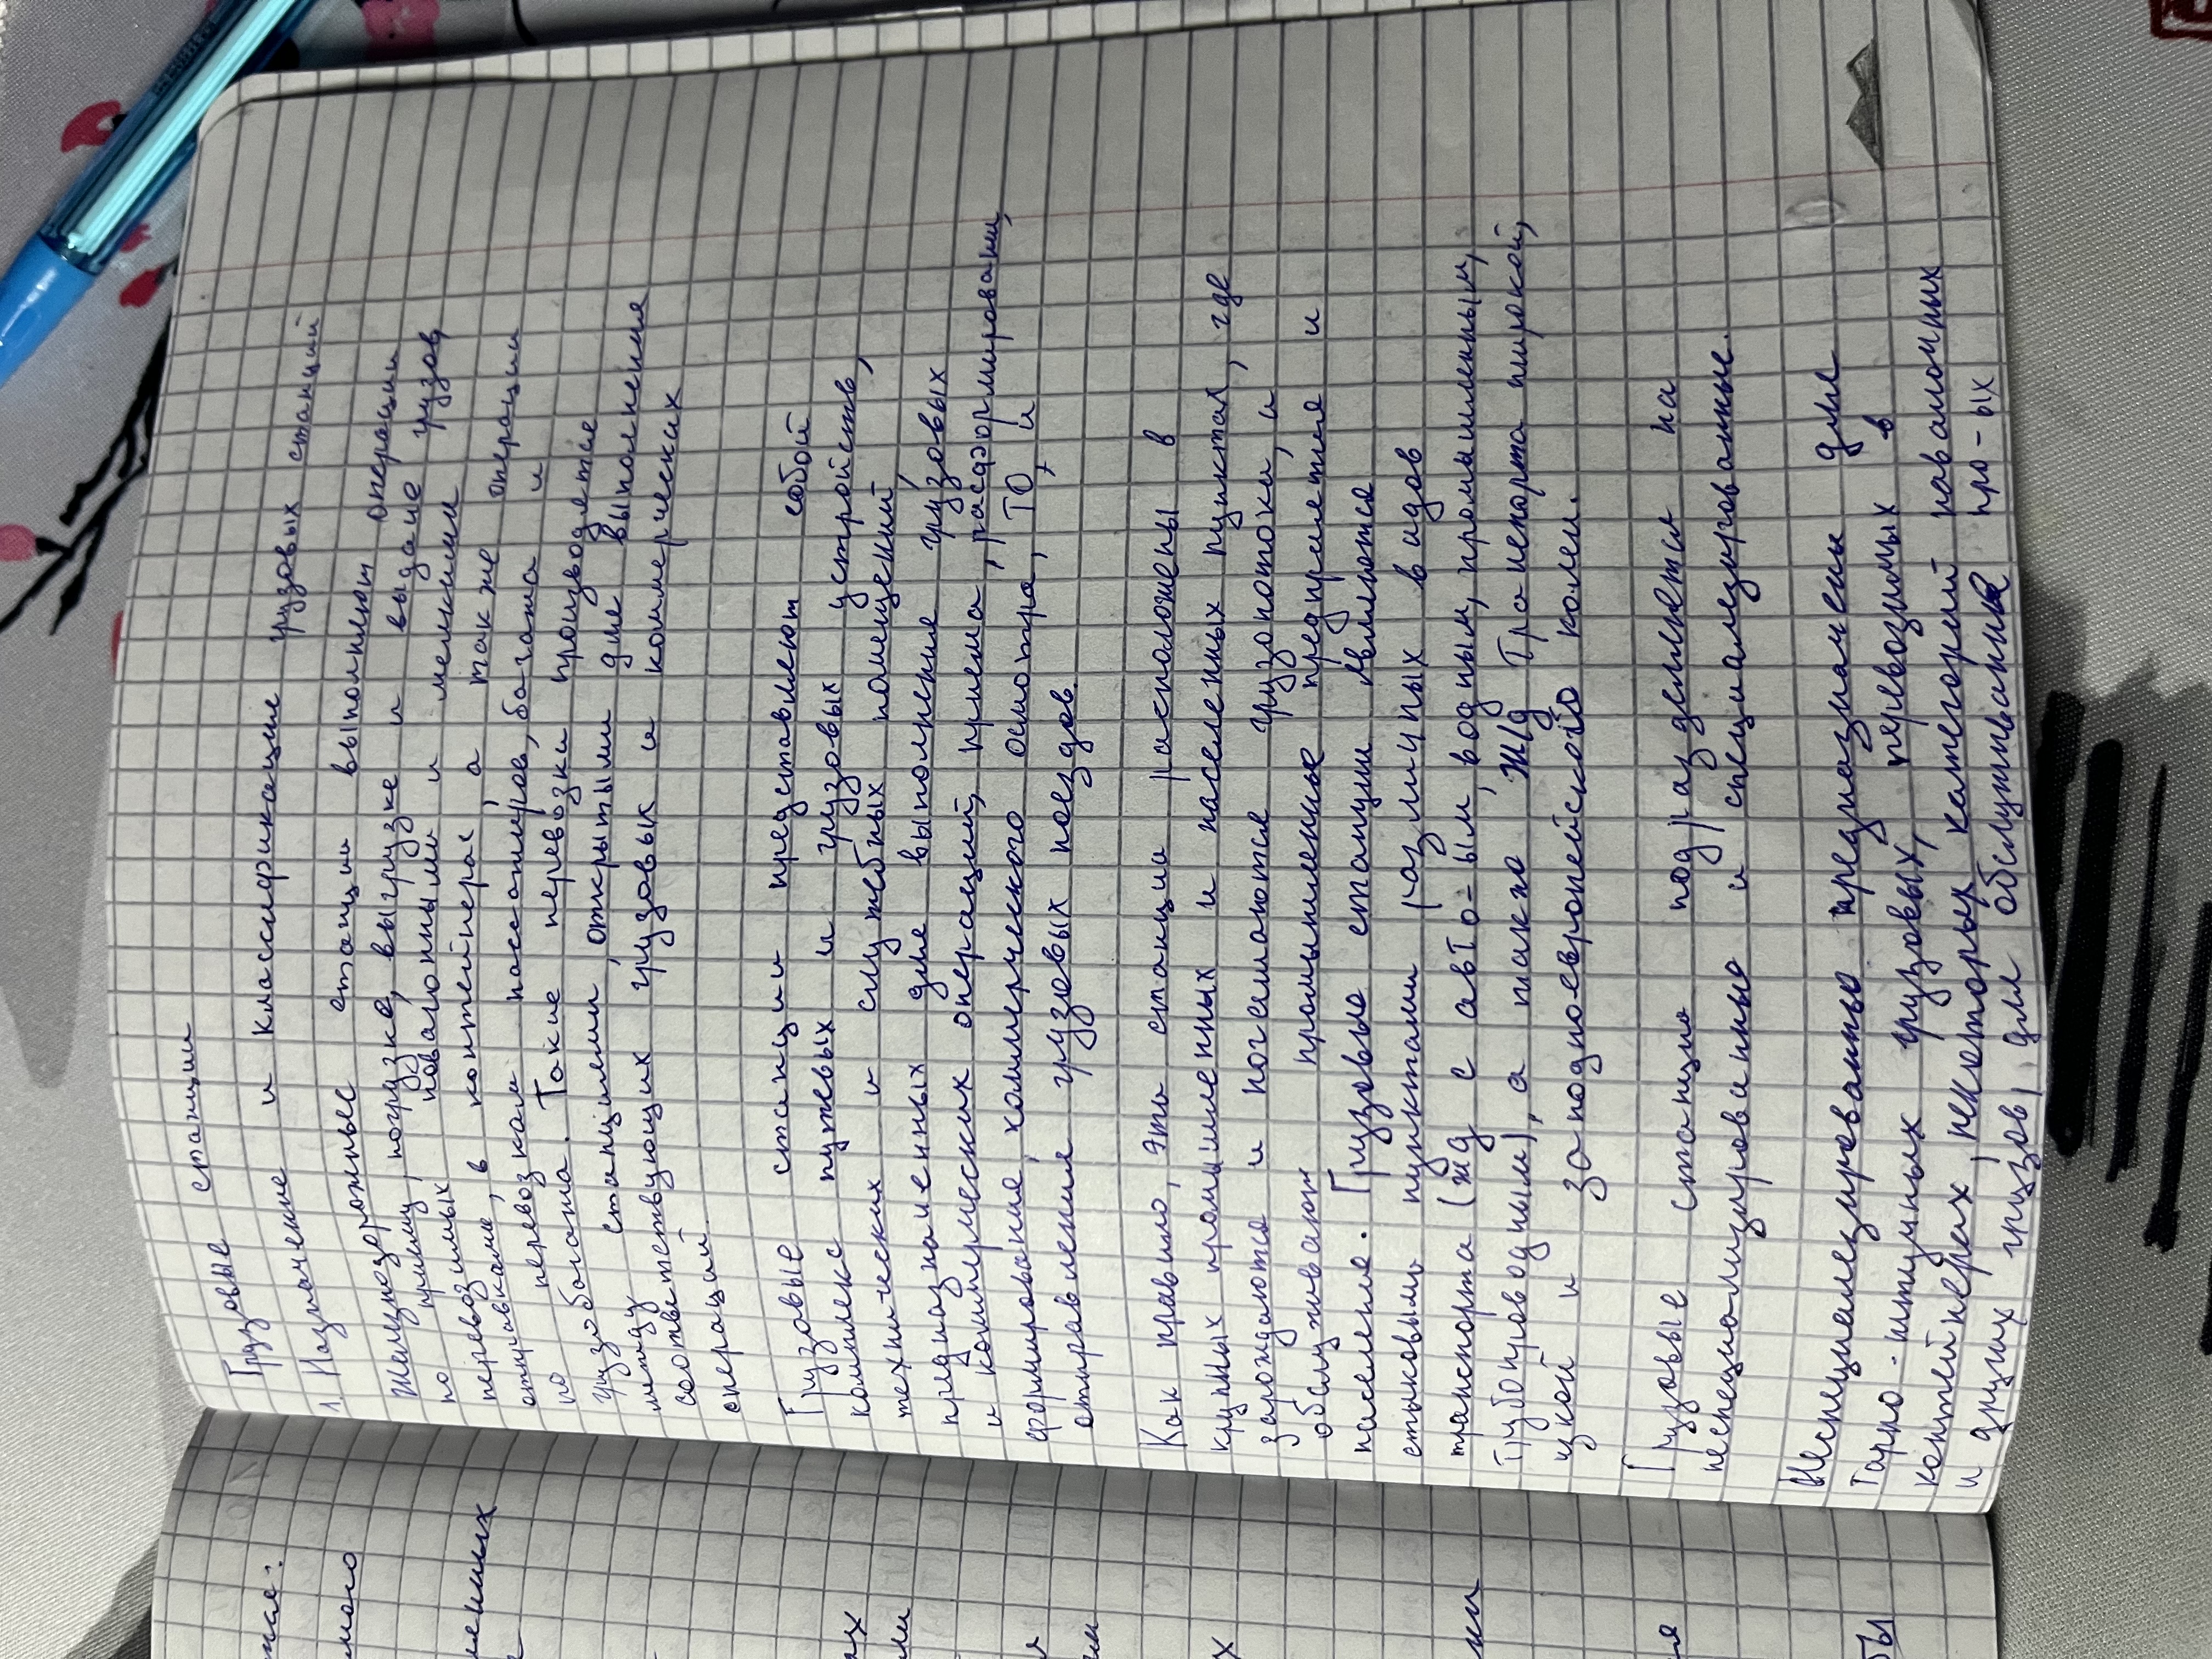 Грузовые станции
1. Назначение и классификацие грузовых станций
Железнодорожные станции выполняют операции
по приему, погрузке, выгрузке и выдаче грузов,
перевозимых повагонными и мелкими
отправками, в контейнерах, а также операции
по перевозкам пассажиров, багажа и
грузобагажа. Такие перевозки производятся
между станциями, открытыми для выполнения
соответствующих грузовых и коммерческих
операций.
Грузовые станции представляют собой
комплекс путевых и грузовых устройств,
технических и служебных помещений,
предназначенных для выполнения грузовых
и коммерческих операций, приема, расформирования,
формирование, коммерческого осмотра, ТО, и
отправления грузовых поездов.
Как правило, эти станции расположены в
крупных промышленных и населенных пунктах, где
зарождаются и погашаются грузопотоки, и
обслуживают промышленные предприятия и
население. Грузовые станции являются
стыковыми пунктами различных видов
транспорта (жд с авто-ым, водным, промышленным,
трубопроводным), а также ж/д транспорта широкой,
узкой и западноевропейского колеи.
Грузовые станции подразделяются на
неспециализированные и специализированные.
Неспециализированные предназначены для
Тарно-штучных грузовых, перевозимых в
контейнерах, некоторых категорий навалочных
и других грузов, для обслуживания про-ых